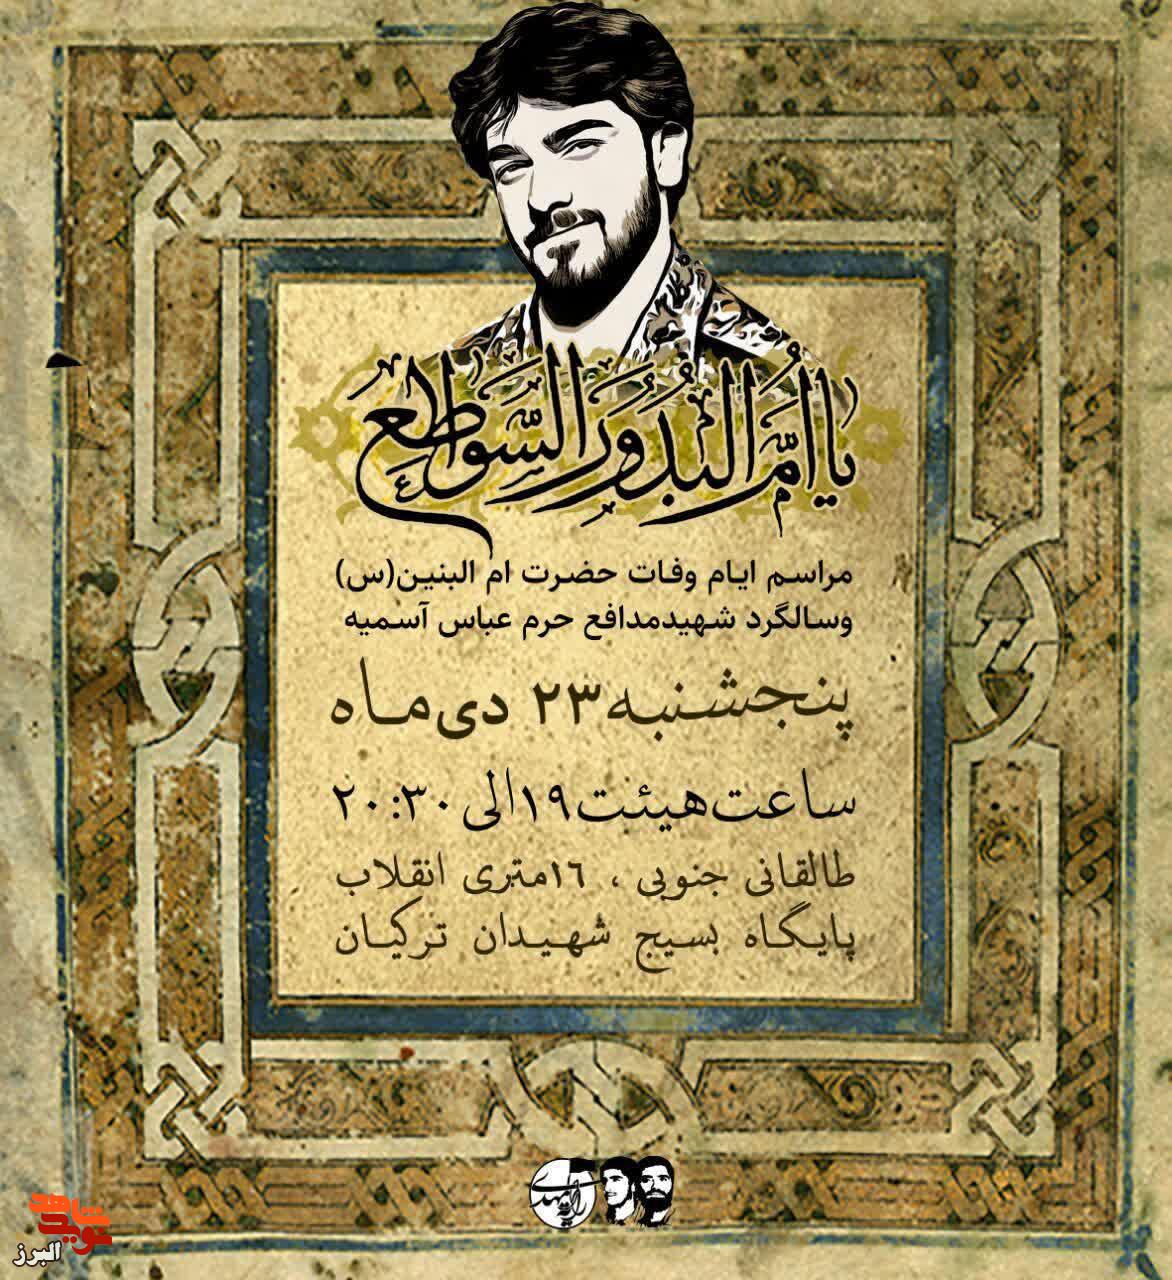 یا اُمَّ البُدُورِ السَّواطِع
مراسم ایام وفات حضرت ام البنین(س)
وسالگرد شهیدمدافع حرم عباس آسمیه
پنجشنبه ۲۳ دی‌ماه
ساعت هیئت ۱۹ الی ۲۰:۳۰
طالقانی جنوبی ، ۱۶متری انقلاب
پایگاه بسیج شهیدان ترکیان
نوید شاهد
البرز